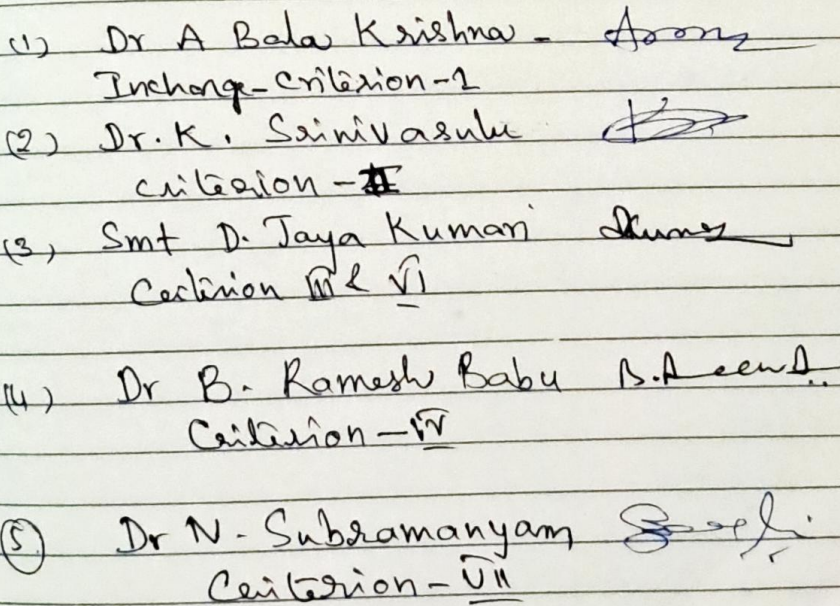 (1) Dr A Bala Krishna -
Incharge - Criterion - 1
(2) Dr. K. Srinivasulu
Criterion - II
(3) Smt D. Jaya Kumari
Criterion III & VI
(4) Dr B. Ramesh Babu
Criterion - IV
(5) Dr N. Subramanyam
Criterion - VII